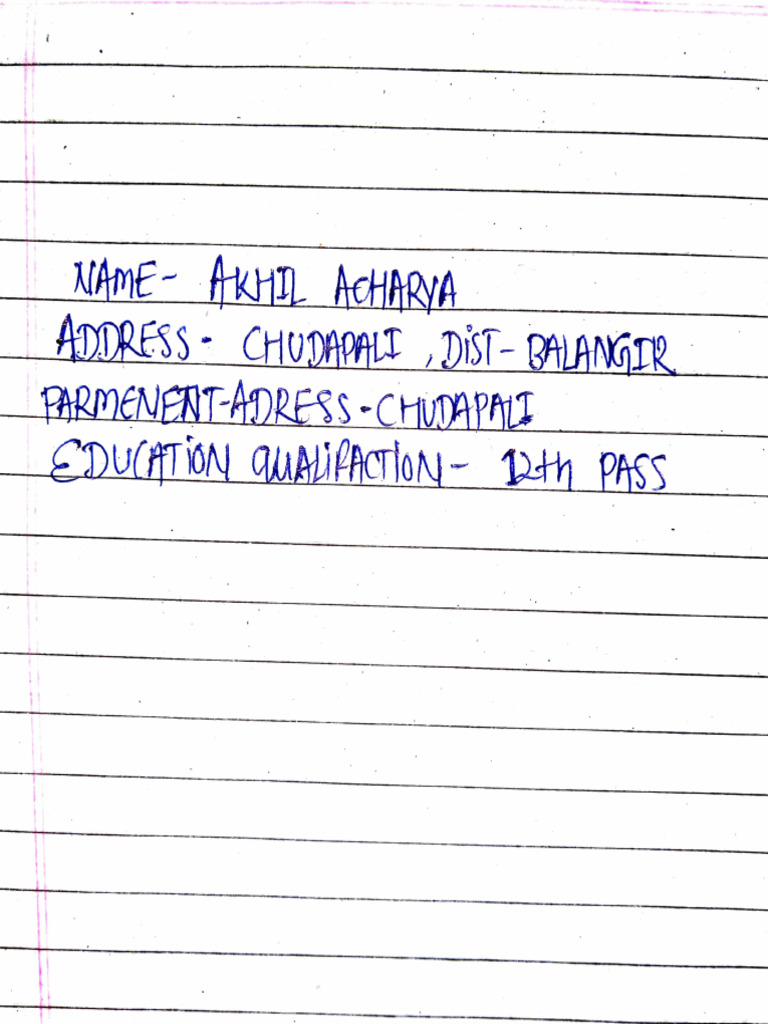 NAME- AKHIL ACHARYA
ADDRESS- CHUDAPALI , DiST- BALANGIR
PARMENENT-ADRESS-CHUDAPALI
EDUCATiON QUALiFACTiON- 12th PASS